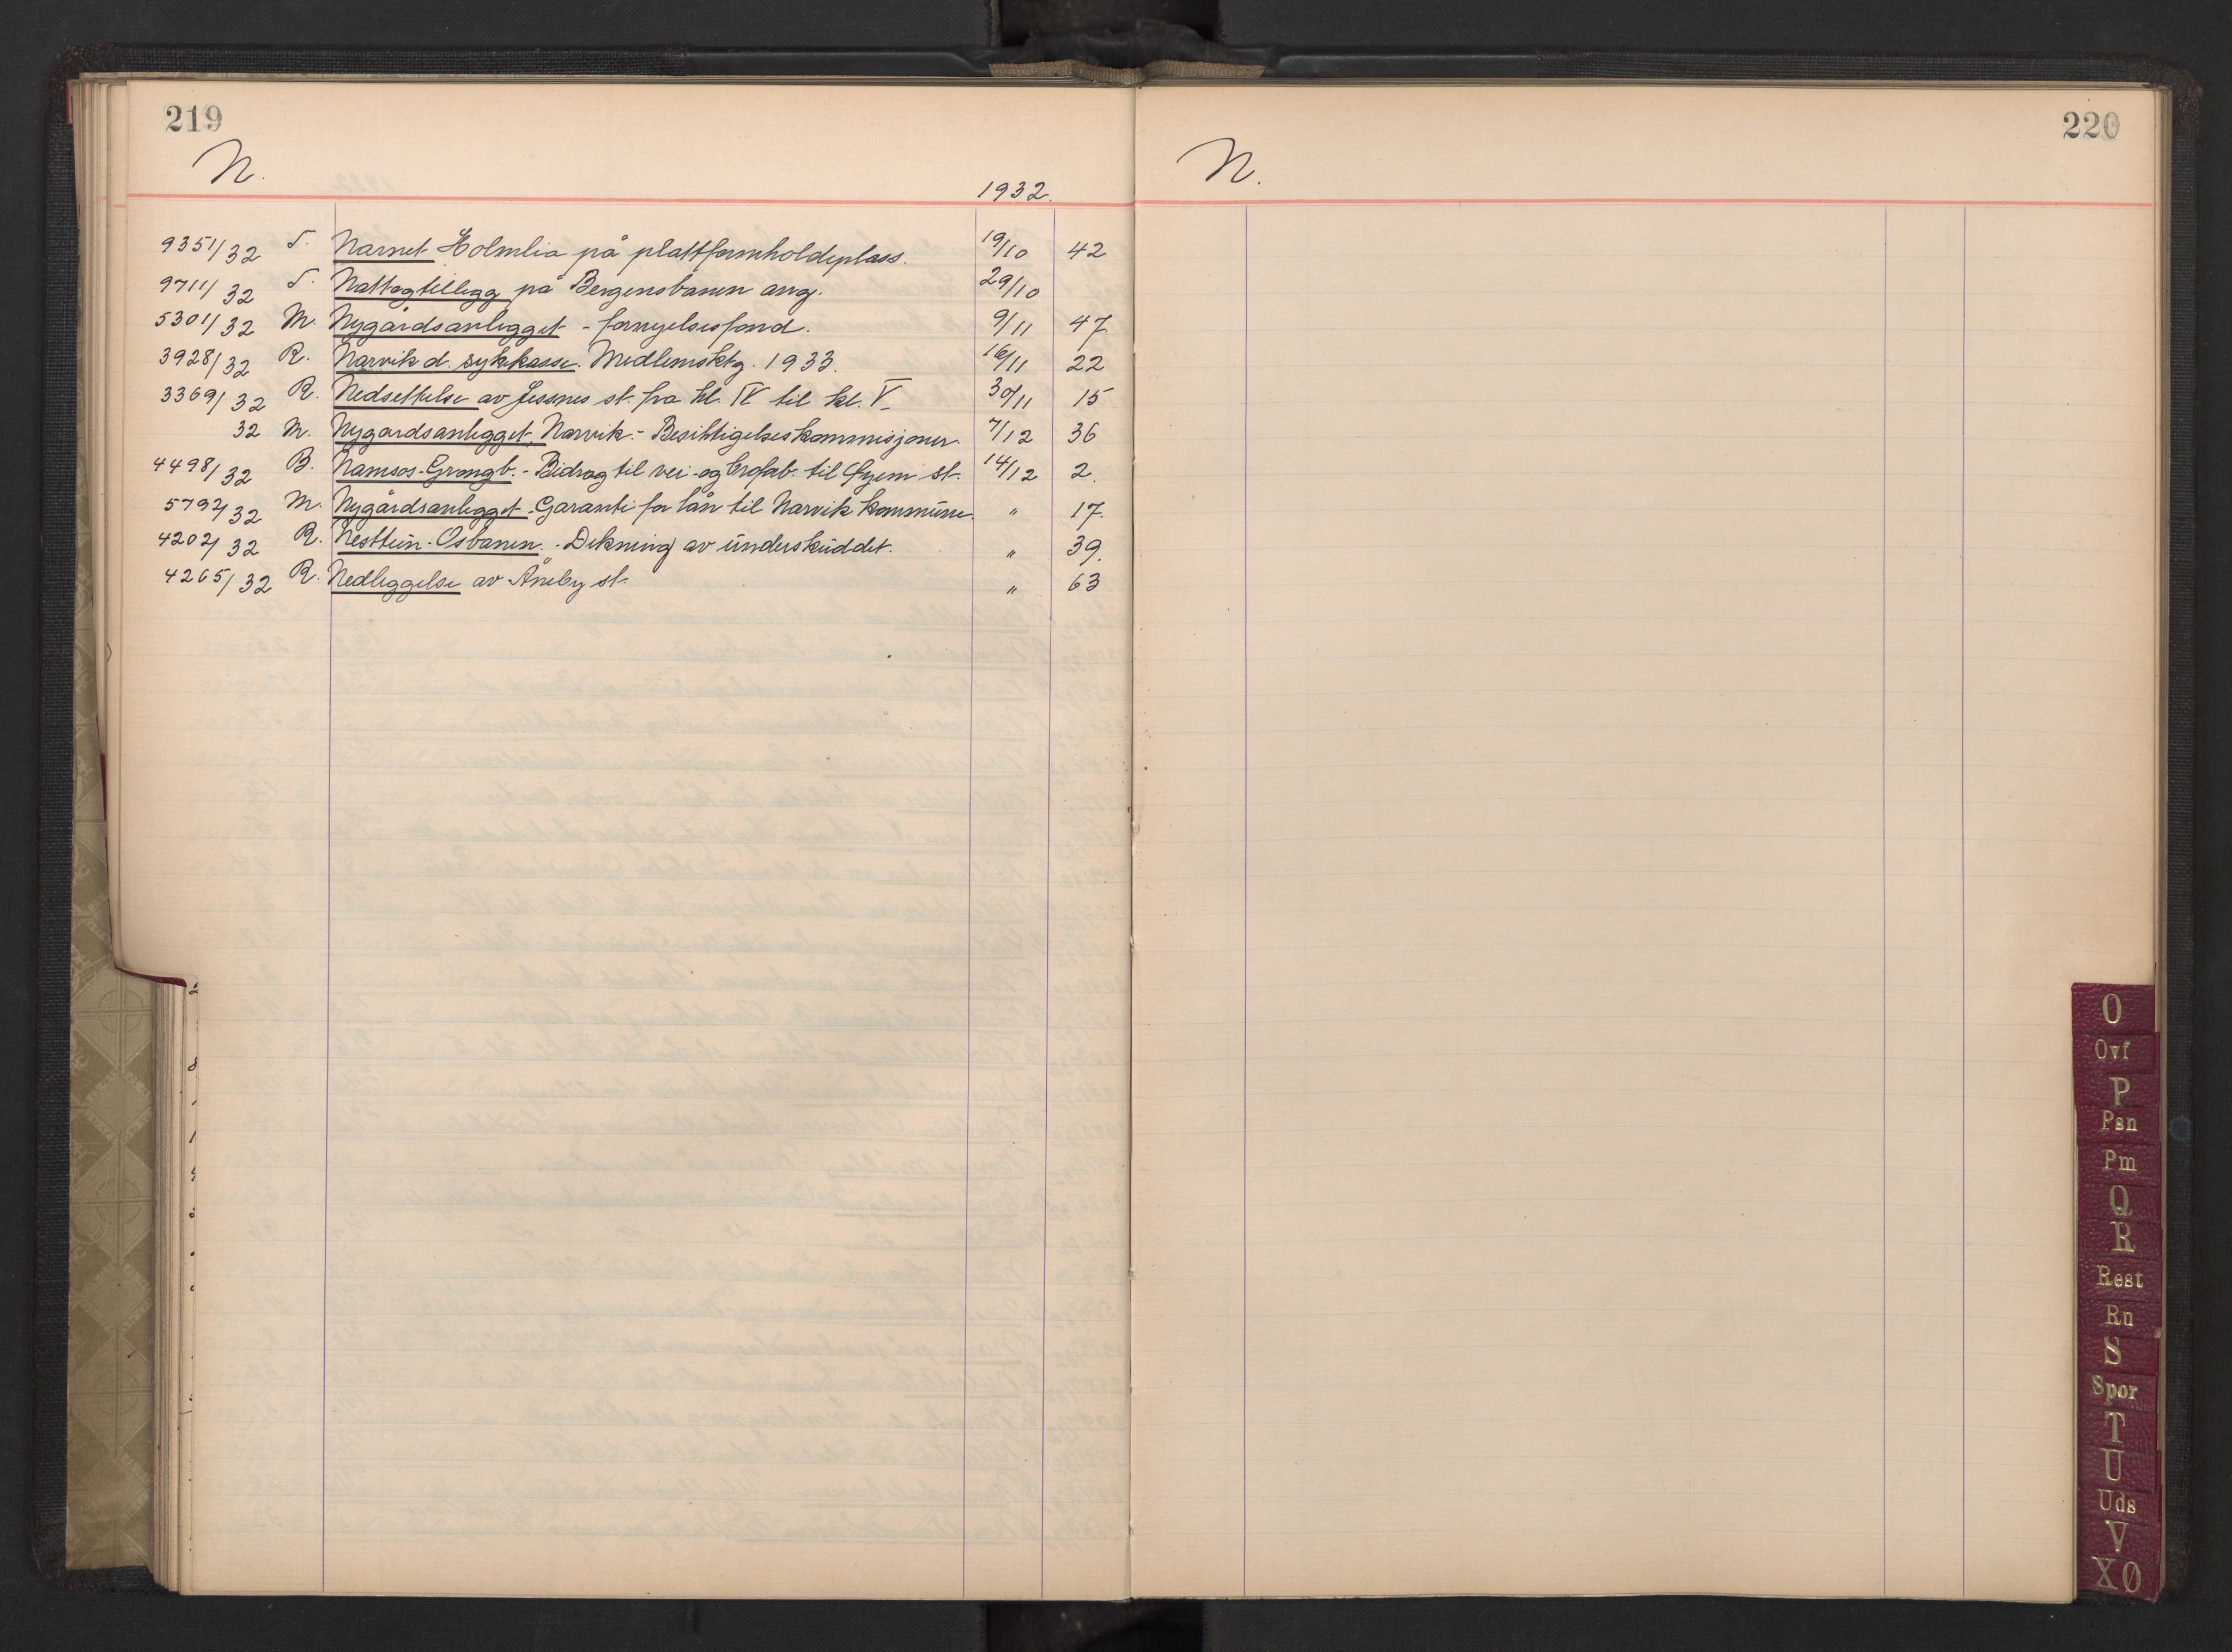 219
N.
1932.
9351/32 T. Navnet Holmlia på plattformholdeplass. 19/10 42
9711/32 T. Nattogtillegg på Bergensbanen ang. 29/10
5301/32 M. Nygårdsanlegget - fornyelsesfond. 9/11 47
3928/32 R. Narvik d. sykekasse. Medlemsktg. 1933. 16/11 22
3369/32 R. Nedsettelse av Jessnes st. fra kl. IV til kl. V. 30/11 15
32 M. Nygårdsanlegget, Narvik. - Besiktigelseskommisjoner. 7/12 36
4498/32 B. Namsos-Grongb. - Bidrag til vei- og brofab. til Øyem st. 14/12 2.
5792/32 M. Nygårdsanlegget. Garanti for lån til Narvik kommune. " 17.
4202/32 R. Nesttun-Osbanen. - Dekning av underskuddet. " 39.
4265/32 R. Nedleggelse av Åneby st. " 63
220
N.
O
Ovf
P
Psn
Pm
Q
R
Rest
Ru
S
Spor
T
U
Uds
V
XØ